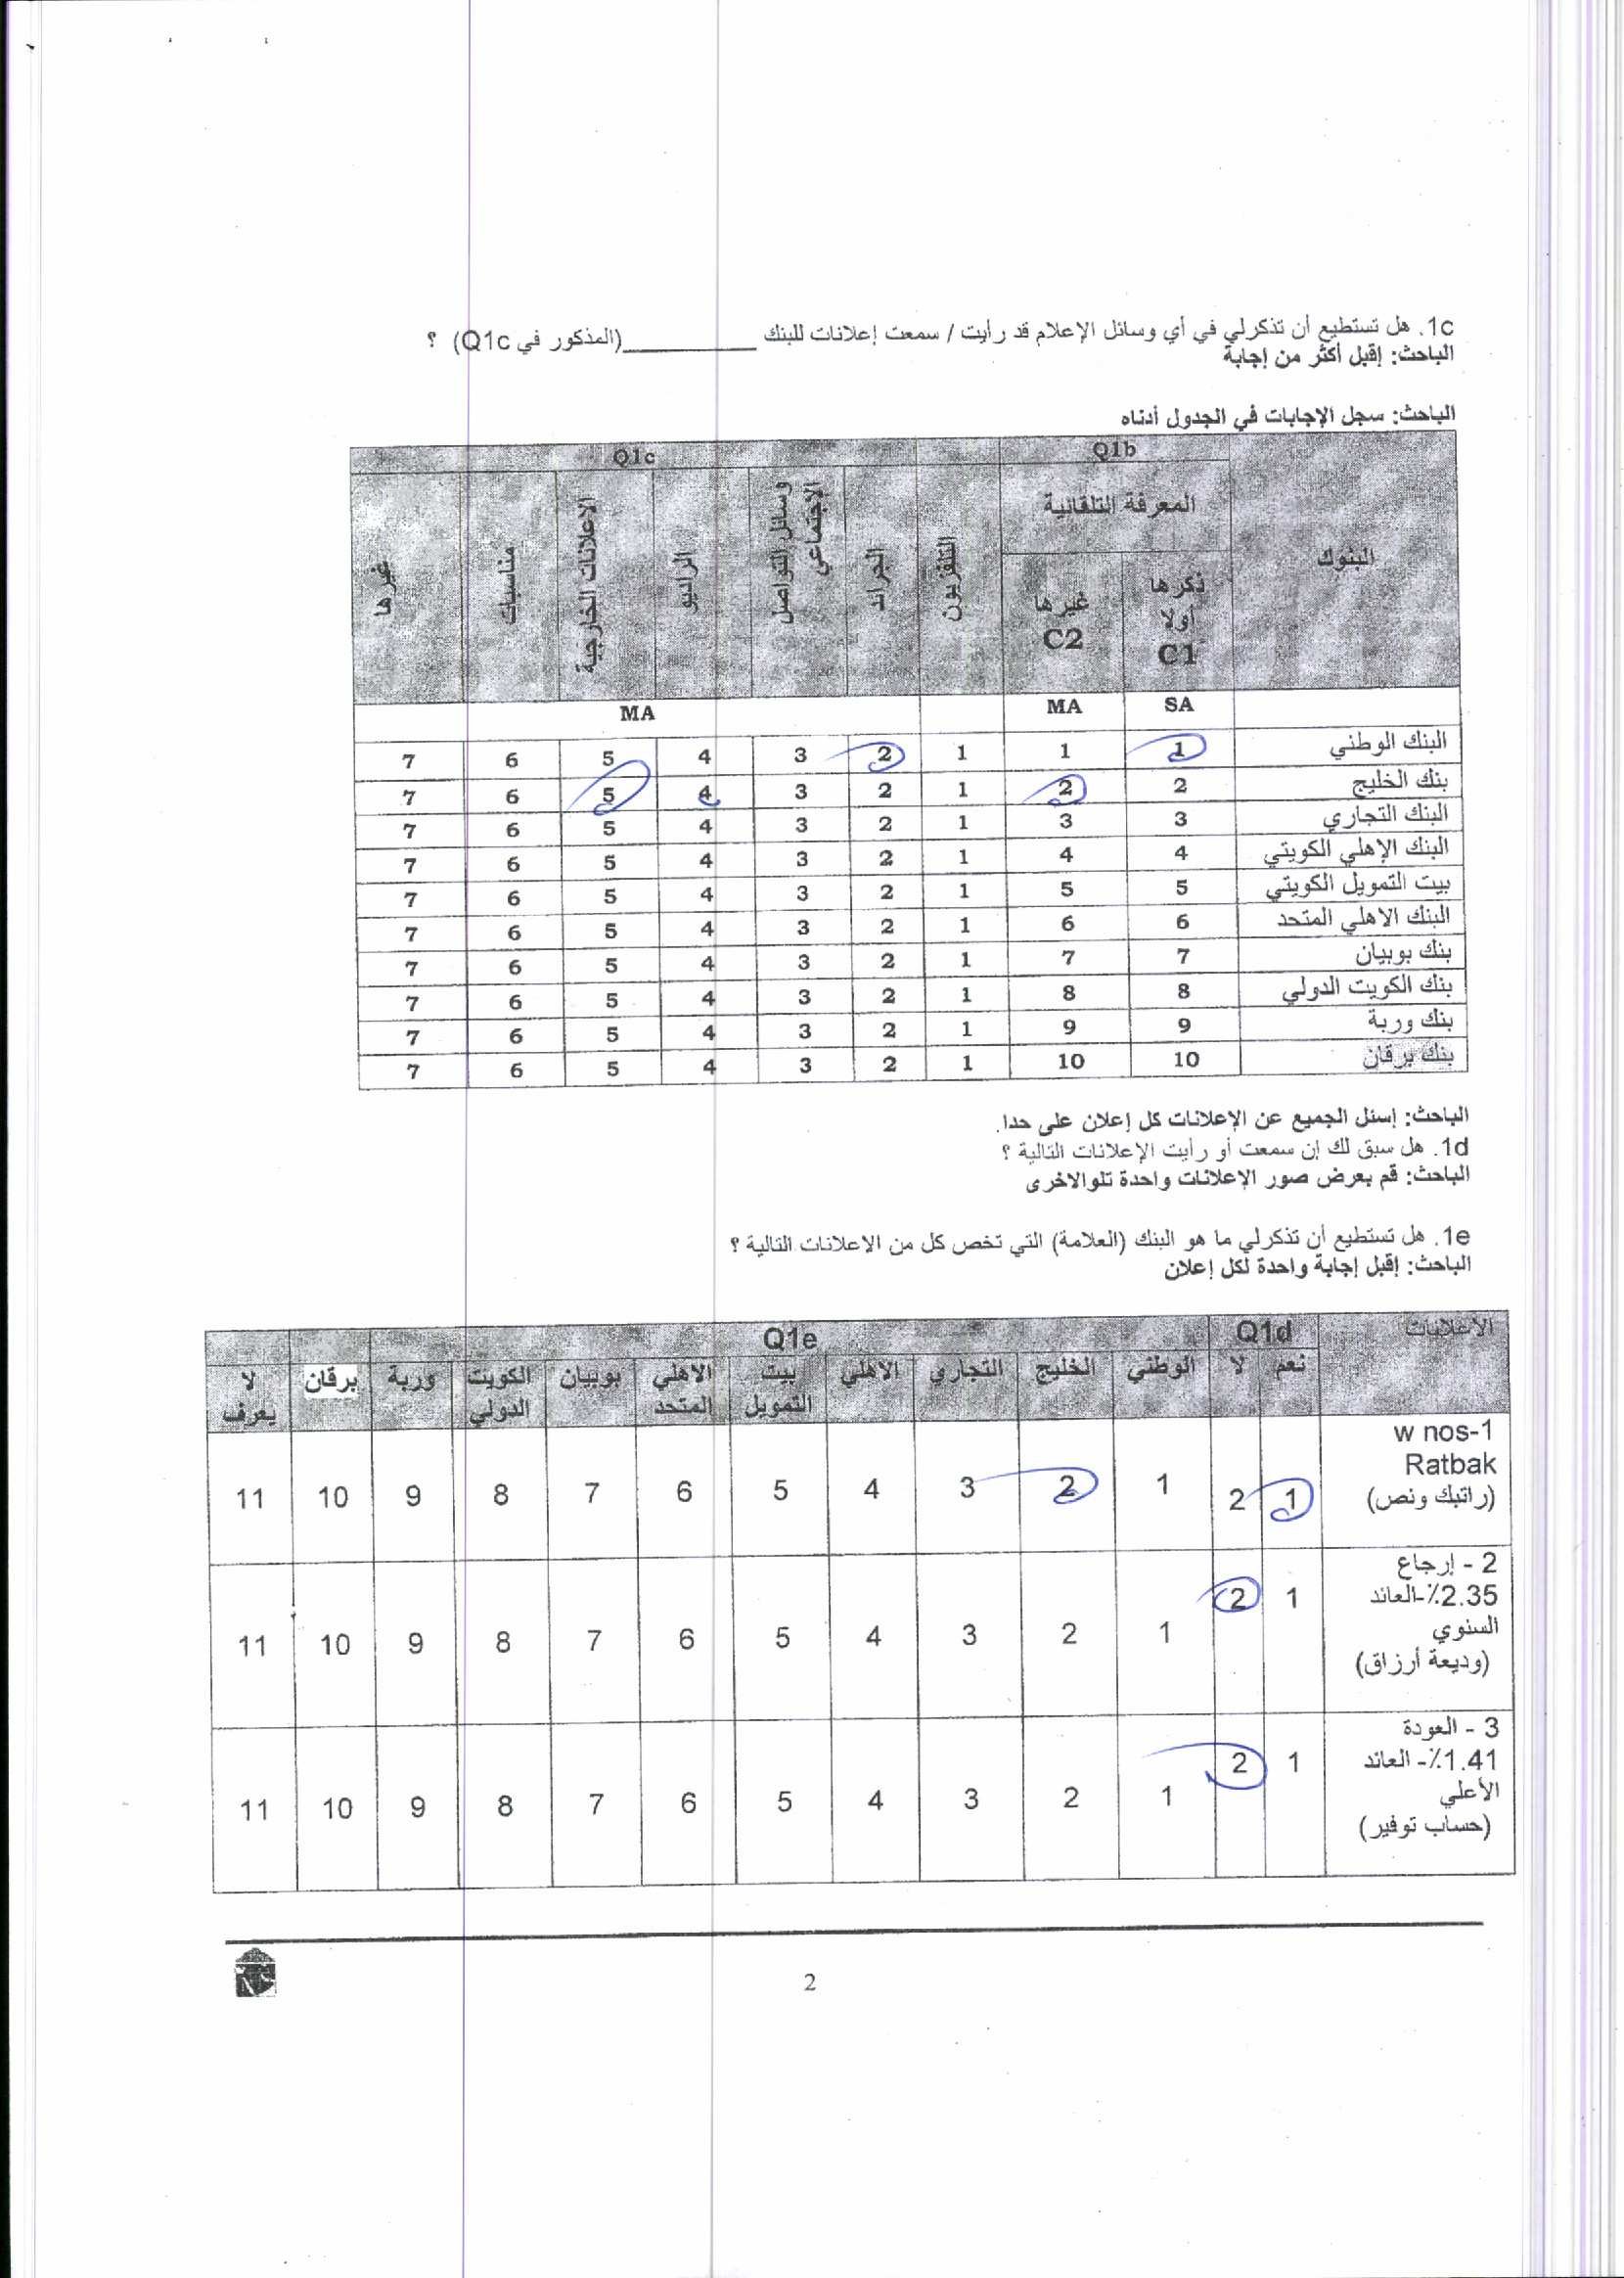 1c. هل تستطيع أن تذكرلي في أي وسائل الإعلام قد رأيت / سمعت إعلانات للبنك ____________(المذكور في Q1c) ؟
الباحث: إقبل أكثر من إجابة
الباحث: سجل الإجابات في الجدول أدناه
البنوك Q1b Q1c
المعرفة التلقائية
ذكرها أولا C1 غيرها C2 التلفزيون الجرائد وسائل التواصل الإجتماعي الراديو الاعلانات الخارجية مناسبات غيرها
SA MA MA
البنك الوطني 1 1 1 2 3 4 5 6 7
بنك الخليج 2 2 1 2 3 4 5 6 7
البنك التجاري 3 3 1 2 3 4 5 6 7
البنك الإهلي الكويتي 4 4 1 2 3 4 5 6 7
بيت التمويل الكويتي 5 5 1 2 3 4 5 6 7
البنك الاهلي المتحد 6 6 1 2 3 4 5 6 7
بنك بوبيان 7 7 1 2 3 4 5 6 7
بنك الكويت الدولي 8 8 1 2 3 4 5 6 7
بنك وربة 9 9 1 2 3 4 5 6 7
بنك برقان 10 10 1 2 3 4 5 6 7
الباحث: إسئل الجميع عن الإعلانات كل إعلان على حدا.
1d. هل سبق لك إن سمعت أو رأيت الإعلانات التالية ؟
الباحث: قم بعرض صور الإعلانات واحدة تلوالاخرى
1e. هل تستطيع أن تذكرلي ما هو البنك (العلامة) التي تخص كل من الاعلانات التالية ؟
الباحث: إقبل إجابة واحدة لكل إعلان
الاعلانات Q1d Q1e
نعم لا الوطني الخليج التجاري الاهلي بيت التمويل الاهلي المتحد بوبيان الكويت الدولي وربة برقان لا يعرف
w nos-1
Ratbak
(راتبك ونص)
1 2 1 2 3 4 5 6 7 8 9 10 11
2 - إرجاع
2.35٪-العائد
السنوي
(وديعة أرزاق)
1 2 1 2 3 4 5 6 7 8 9 10 11
3 - العودة
1.41٪- العائد
الأعلي
(حساب توفير)
1 2 1 2 3 4 5 6 7 8 9 10 11
2